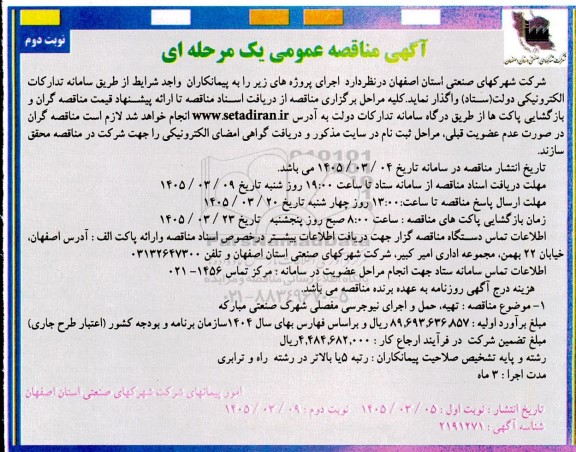 نوبت دوم
آگهی مناقصه عمومی یک مرحله ای
شرکت شهرکهای صنعتی استان اصفهان درنظردارد اجرای پروژه های زیر را به پیمانکاران واجد شرایط از طریق سامانه تدارکات
الکترونیکی دولت(ستاد) واگذار نماید.کلیه مراحل برگزاری مناقصه از دریافت اسناد مناقصه تا ارائه پیشنهاد قیمت مناقصه گران و
بازگشایی پاکت ها از طریق درگاه سامانه تدارکات دولت به آدرس www.setadiran.ir انجام خواهد شد لازم است مناقصه گران
در صورت عدم عضویت قبلی، مراحل ثبت نام در سایت مذکور و دریافت گواهی امضای الکترونیکی را جهت شرکت در مناقصه محقق
سازند.
تاریخ انتشار مناقصه در سامانه تاریخ ۰۴ / ۰۳ / ۱۴۰۵ می باشد.
مهلت دریافت اسناد مناقصه از سامانه ستاد تا ساعت ۱۹:۰۰ روز شنبه تاریخ ۰۹ / ۰۳ / ۱۴۰۵
مهلت ارسال پاسخ مناقصه تا ساعت:۱۳:۰۰ روز چهار شنبه تاریخ ۲۰ / ۰۳ / ۱۴۰۵
زمان بازگشایی پاکت های مناقصه : ساعت ۸:۰۰ صبح روز پنجشنبه تاریخ ۲۳ / ۰۳ / ۱۴۰۵
اطلاعات تماس دستگاه مناقصه گزار جهت دریافت اطلاعات بیشتر درخصوص اسناد مناقصه وارائه پاکت الف : آدرس اصفهان،
خیابان ۲۲ بهمن، مجموعه اداری امیر کبیر، شرکت شهرکهای صنعتی استان اصفهان و تلفن ۰۳۱۳۲۶۴۷۳۰۰
اطلاعات تماس سامانه ستاد جهت انجام مراحل عضویت در سامانه : مرکز تماس ۱۴۵۶- ۰۲۱
هزینه درج آگهی روزنامه به عهده برنده مناقصه می باشد.
۱- موضوع مناقصه : تهیه، حمل و اجرای نیوجرسی مفصلی شهرک صنعتی مبارکه
مبلغ برآورد اولیه : ۸۹,۶۹۳,۶۳۶,۸۵۷ ریال و براساس فهارس بهای سال ۱۴۰۴سازمان برنامه و بودجه کشور (اعتبار طرح جاری)
مبلغ تضمین شرکت در فرآیند ارجاع کار : ۴,۴۸۴,۶۸۲,۰۰۰ریال
رشته و پایه تشخیص صلاحیت پیمانکاران : رتبه ۵یا بالاتر در رشته راه و ترابری
مدت اجرا : ۳ ماه
امور پیمانهای شرکت شهرکهای صنعتی استان اصفهان
تاریخ انتشار : نوبت اول : ۰۵ / ۰۳ / ۱۴۰۵ نوبت دوم : ۰۹ / ۰۳ / ۱۴۰۵
شناسه آگهی : ۲۱۹۱۲۷۱